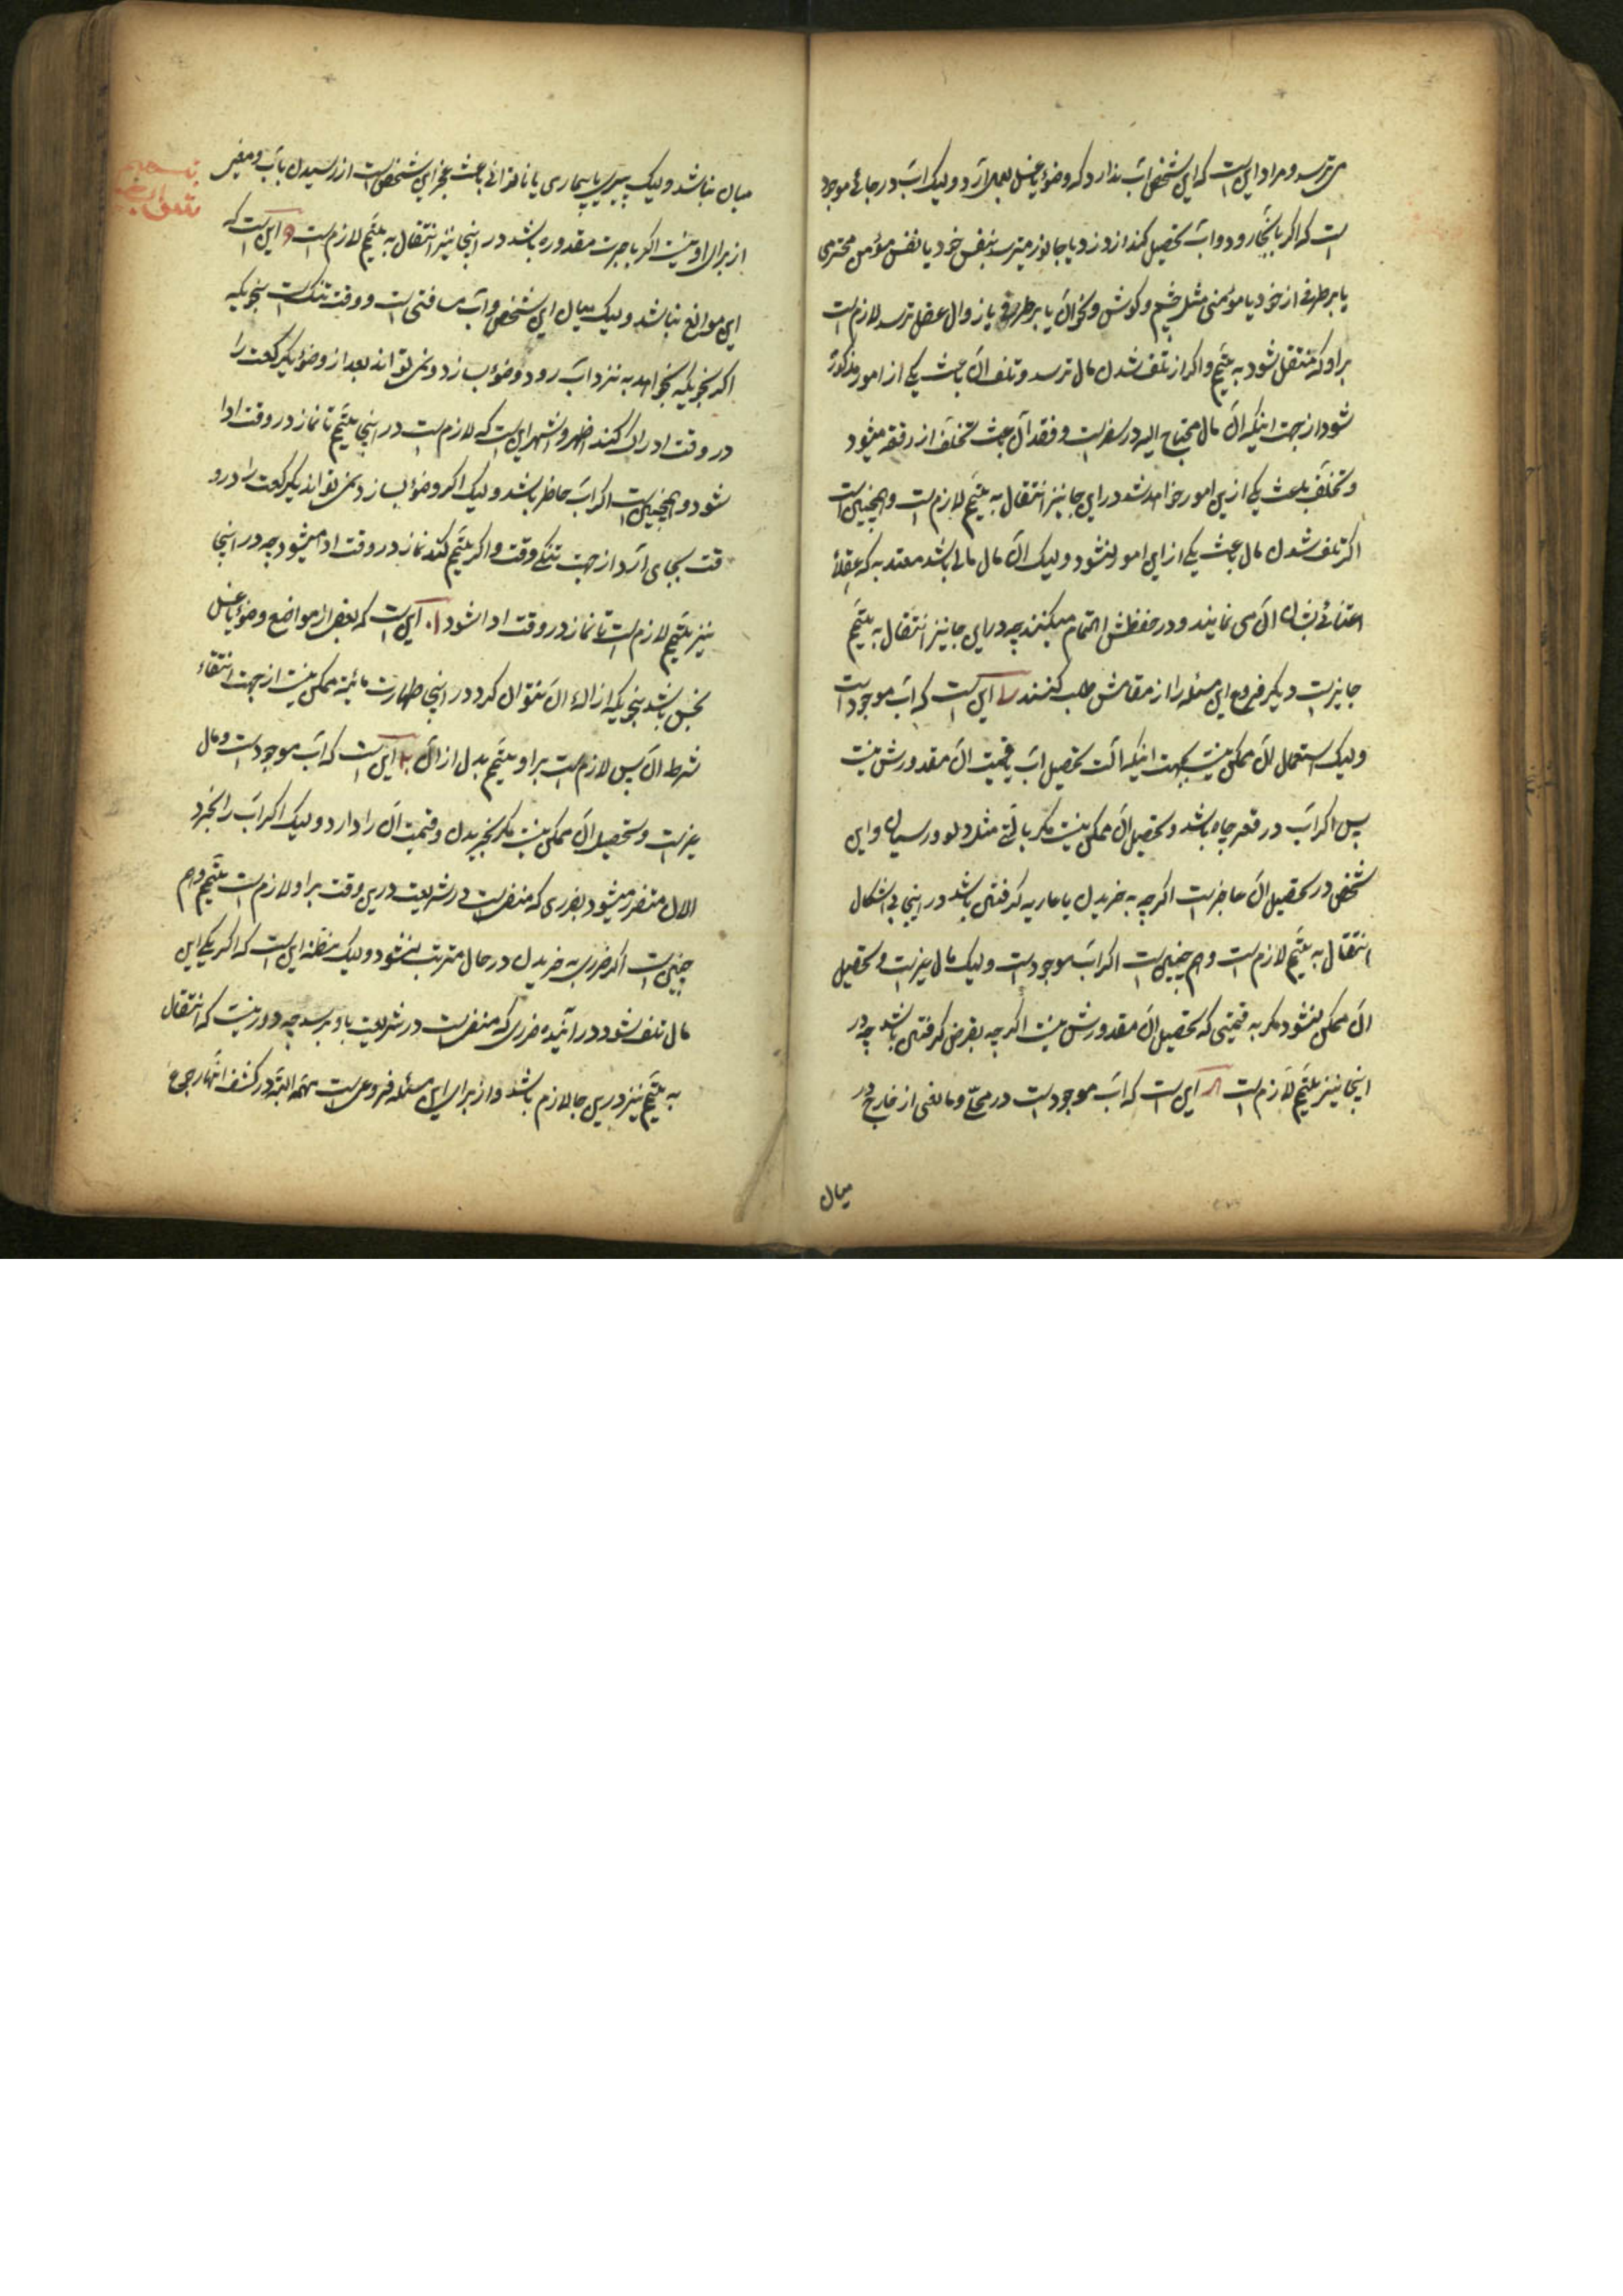 می ترسد و مراد این است که این شخص آب ندارد که وضوء یا غسل بعمل آرد و لیک آب در جائی موجود
است که اگر بآنجا رود و آب تحصیل کند از دزد یا جانور میترسد بنفس خود یا نفس مؤمن محترمی
یا بر طرفی از خود یا مؤمنی مثل چشم و گوش و نحو آن یا بر طرفی یا زوال عقل ترسد لازم است
بر او که منتقل شود به تیمّم و اگر از تلف شدن مال ترسد و تلف آن باعث یکی از امور مذکوره
شود از جهت اینکه آن مال محتاج الیه در سفر است و فقد آن باعث تخلّف از رفقه میشود
و تخلّف باعث یکی ازین امور خواهد شد در این جا نیز انتقال به تیمّم لازم است و همچنین است
اگر تلف شدن مال باعث یکی از این امور نشود و لیک آن مال مالی باشد معتد به که عقلاء
اعتنائی بشان آن می نمایند و در حفظش اهتمام میکنند چه در این جا نیز انتقال به تیمّم
جایز است و دیگر فروع این مسئله را از مقامش طلب کنند این است که آب موجود است
و لیک استعمال آن ممکن نیست بجهت اینکه آلت تحصیل آب یا قیمت آن مقدورش نیست
پس اگر آب در قعر چاه باشد و تحصیل آن ممکن نیست مگر بآلتی مثل دلو و ریسمان و این
شخص در تحصیل آن عاجز است اگر چه به خریدن یا عاریه گرفتن باشد در اینجا بی اشکال
انتقال به تیمّم لازم است و هم چنین است اگر آب موجود است و لیک مال غیر است و تحصیل
آن ممکن نشود مگر به قیمتی که تحصیل آن مقدورش نیست اگر چه بقرض گرفتن باشد چه در
اینجا نیز تیمّم لازم است این است که آب موجود است در محلّی و مانعی از خارج در
میان
میان نباشد و لیک پیری یا بیماری یا ناتوانی باعث عجز این شخص است از رسیدن بآب و معین
از برای او نیست اگر باجرت مقدوره باشد در اینجا نیز انتقال به تیمّم لازم است و این است که
این موانع نباشد و لیک میان این شخص و آب مسافتی است و وقت تنگ است بنحویکه
اگر بنحویکه بخواهد به نزد آب رود و وضوء بسازد و نمی تواند بعد از وضوء یکرکعت را
در وقت ادراک کند اظهر و اشهر این است که لازم است در اینجا تیمّم تا نماز در وقت ادا
شود و همچنین است اگر آب حاضر باشد و لیک اگر وضوء بسازد نمی تواند یکرکعت را در و
قت بجای آرد از جهت تنگی وقت و اگر تیمّم کند نماز در وقت ادا میشود چه در اینجا
نیز تیمّم لازم است تا نماز در وقت ادا شود این است که بعض از مواضع وضوء یا غسل
نجس باشد بنحویکه ازالهٔ آن نتوان کرد و در اینجا طهارت مائیه ممکن نیست از جهت انتفاء
شرط آن پس لازم است بر او تیمّم بدل از آن این است که آب موجود است و مال
غیر است و تحصیل آن ممکن نیست مگر بخریدن و قیمت آن را دارد و لیک اگر آب را بخرد
الان متضرر میشود بضرری که منفی است در شریعت درین وقت بر او لازم است تیمّم و هم
چنین است اگر ضرر به خریدن در حال مترتب نشود و لیک مظنه این است که اگر یکی این
مال تلف شود در آینده ضرری که منفی است در شریعت باو برسد چه دور نیست که انتقال
به تیمّم نیز درین جا لازم باشد و از برای این مسئله فروعی است مهمّه البته در کشف انها رجوع